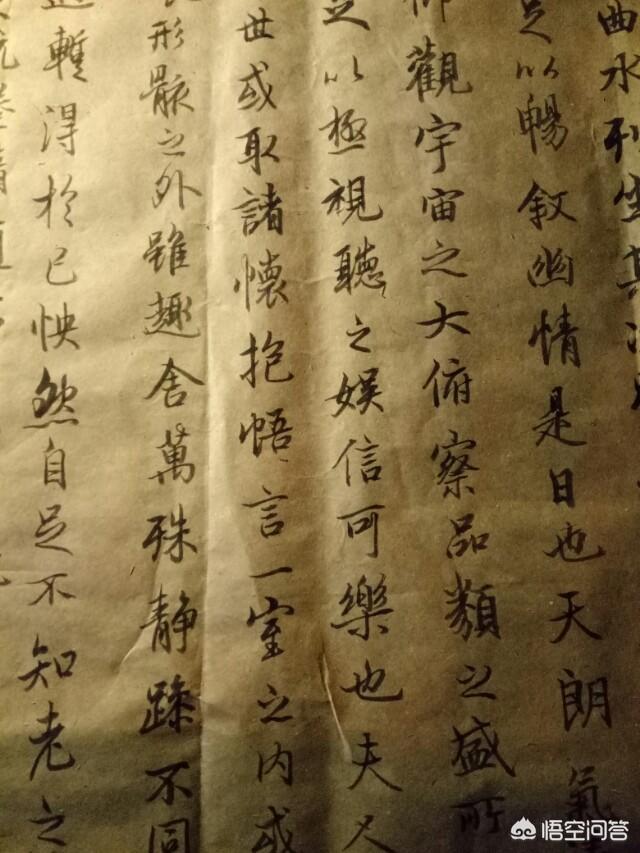 曲水列坐其次
足以暢叙幽情是日也天朗氣
仰觀宇宙之大俯察品類之盛所
足以極視聽之娱信可樂也夫人
世或取諸懷抱悟言一室之内或
形骸之外雖趣舍萬殊静躁不同
暫得於己怏然自足不知老之
悟空问答